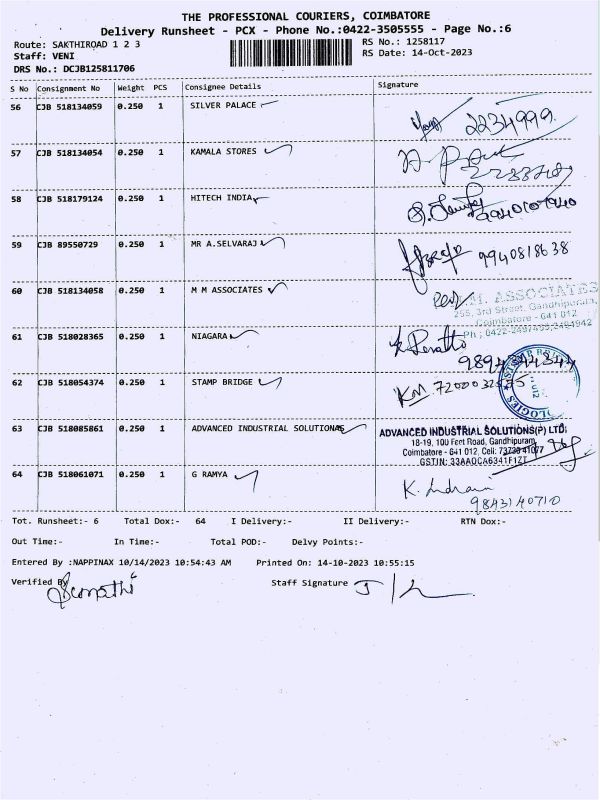 THE PROFESSIONAL COURIERS, COIMBATORE
Delivery Runsheet - PCX - Phone No.:0422-3505555 - Page No.:6
Route: SAKTHIROAD 1 2 3
RS No.: 1258117
Staff: VENI
RS Date: 14-Oct-2023
DRS No.: DCJB125811706
S No Consignment No Weight PCS Consignee Details Signature
56 CJB 518134059 0.250 1 SILVER PALACE 2234999
57 CJB 518134054 0.250 1 KAMALA STORES
58 CJB 518179124 0.250 1 HITECH INDIA
59 CJB 89550729 0.250 1 MR A.SELVARAJ 9940818638
60 CJB 518134058 0.250 1 M M ASSOCIATES
M.M. ASSOCIATES
255, 3rd Street, Gandhipuram,
Coimbatore - 641 012
Ph : 0422-2497433, 2494942
61 CJB 518028365 0.250 1 NIAGARA
9894 44344
62 CJB 518054374 0.250 1 STAMP BRIDGE KM 7200032575
63 CJB 518085861 0.250 1 ADVANCED INDUSTRIAL SOLUTIONS
ADVANCED INDUSTRIAL SOLUTIONS(P) LTD.
18-19, 100 Feet Road, Gandhipuram,
Coimbatore - 641 012, Cell: 73730 41077
GSTIN: 33AAOCA6341F1ZT
64 CJB 518061071 0.250 1 G RAMYA K. Indrani
9843140710
Tot. Runsheet:- 6 Total Dox:- 64 I Delivery:- II Delivery:- RTN Dox:-
Out Time:- In Time:- Total POD:- Delvy Points:-
Entered By :NAPPINAX 10/14/2023 10:54:43 AM Printed On: 14-10-2023 10:55:15
Verified By Staff Signature